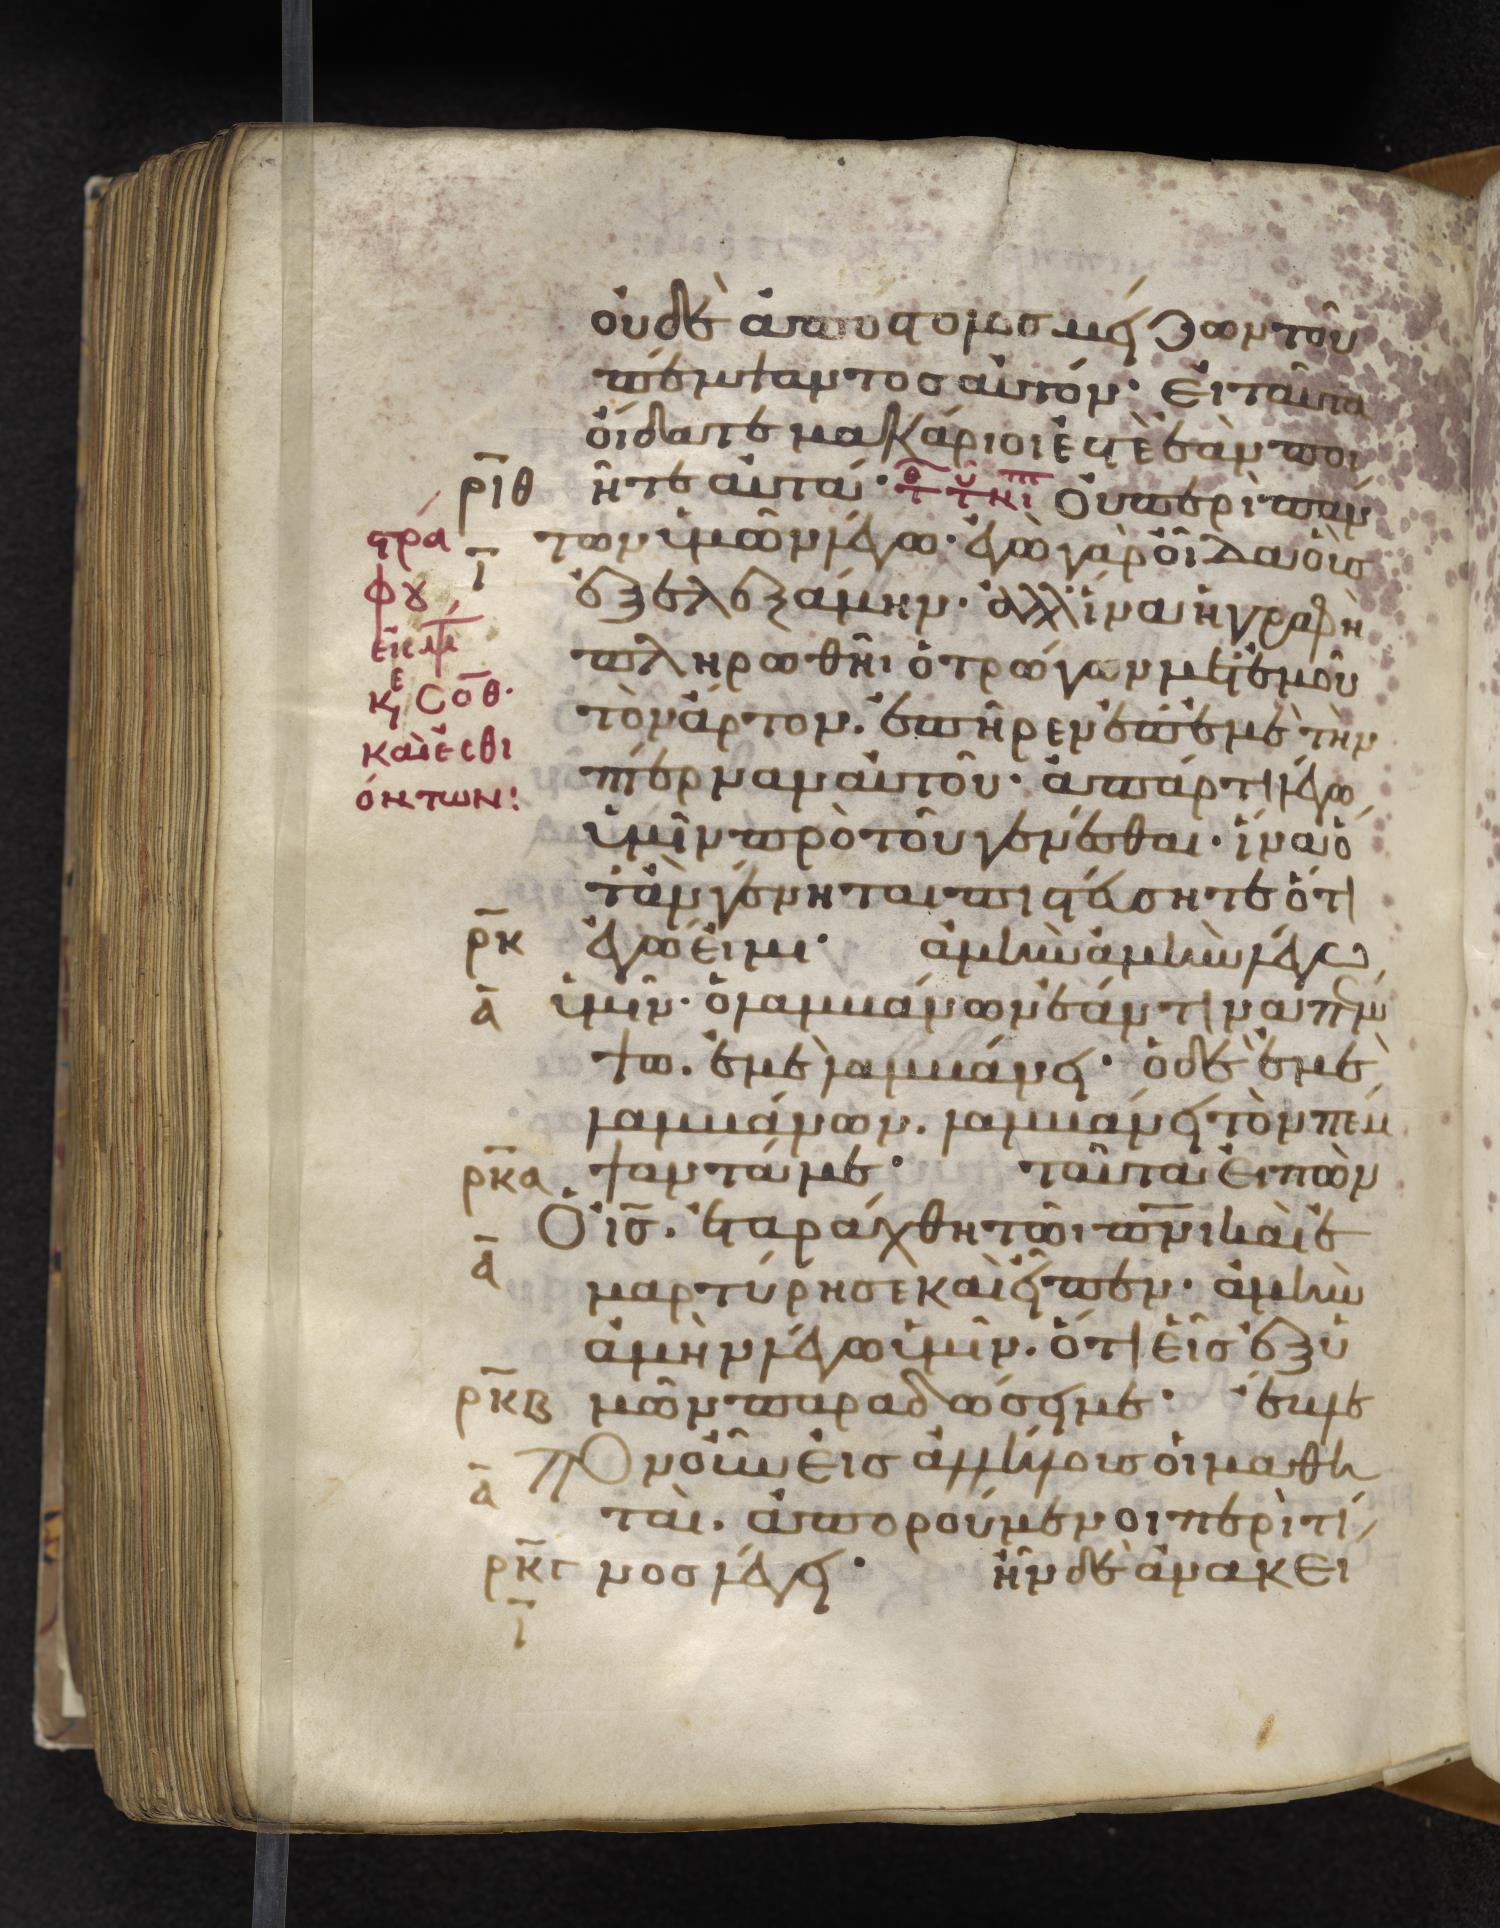 οὐδὲ ἀπόστολος μείζων τοῦ
πέμψαντος αὐτόν· εἰ ταῦτα
οἴδατε μακάριοί ἐστὲ ἐὰν ποι
ῆτε αὐτά· Οὐ περὶ πάν
ρ̅ι̅θ̅
των ὑμῶν λέγω· ἐγὼ γὰρ οἶδα οὓς
ι̅
ἐξελεξάμην· ἀλλ' ἵνα ἡ γραφὴ
πληρωθῆι ὁ τρώγων μετ' ἐμοῦ
τὸν ἄρτον. ἐπῆρεν ἐπ' ἐμὲ τὴν
πτέρναν αὐτοῦ· ἀπάρτι λέγω
ὑμῖν πρὸ τοῦ γενέσθαι· ἵνα ὅ
τὰν γένηται πιστεύσητε ὅτι
ρ̅κ̅
ἐγώ εἰμι· ἀμὴν ἀμὴν λέγω
α̅
ὑμῖν· ὁ λαμβάνων ἐάν τινα πέμ
ψω. ἐμὲ λαμβάνει· ὁ δὲ ἐμὲ
λαμβάνων. λαμβάνει τὸν πέμ
ρ̅κ̅α̅
ψαντά με· ταῦτα εἰπὼν
Ὁ ι̅ς̅. ἐταράχθη τῶι π̅ν̅ι̅ καὶ ἐ
α̅
μαρτύρησε καὶ εἶπεν· ἀμὴν
ἀμὴν λέγω ὑμῖν. ὅτι εἷς ἐξ ὑ
ρ̅κ̅β̅
μῶν παραδώσει με· ἔβλε
Πον οὖν εἰς ἀλλήλους οἱ μαθη
α̅
ταὶ. ἀπορούμενοι περὶ τί
ρ̅κ̅γ̅
νος λέγει· ἦν δὲ ἀνακεί
ι̅
καὶ ἐσθι
όντων: